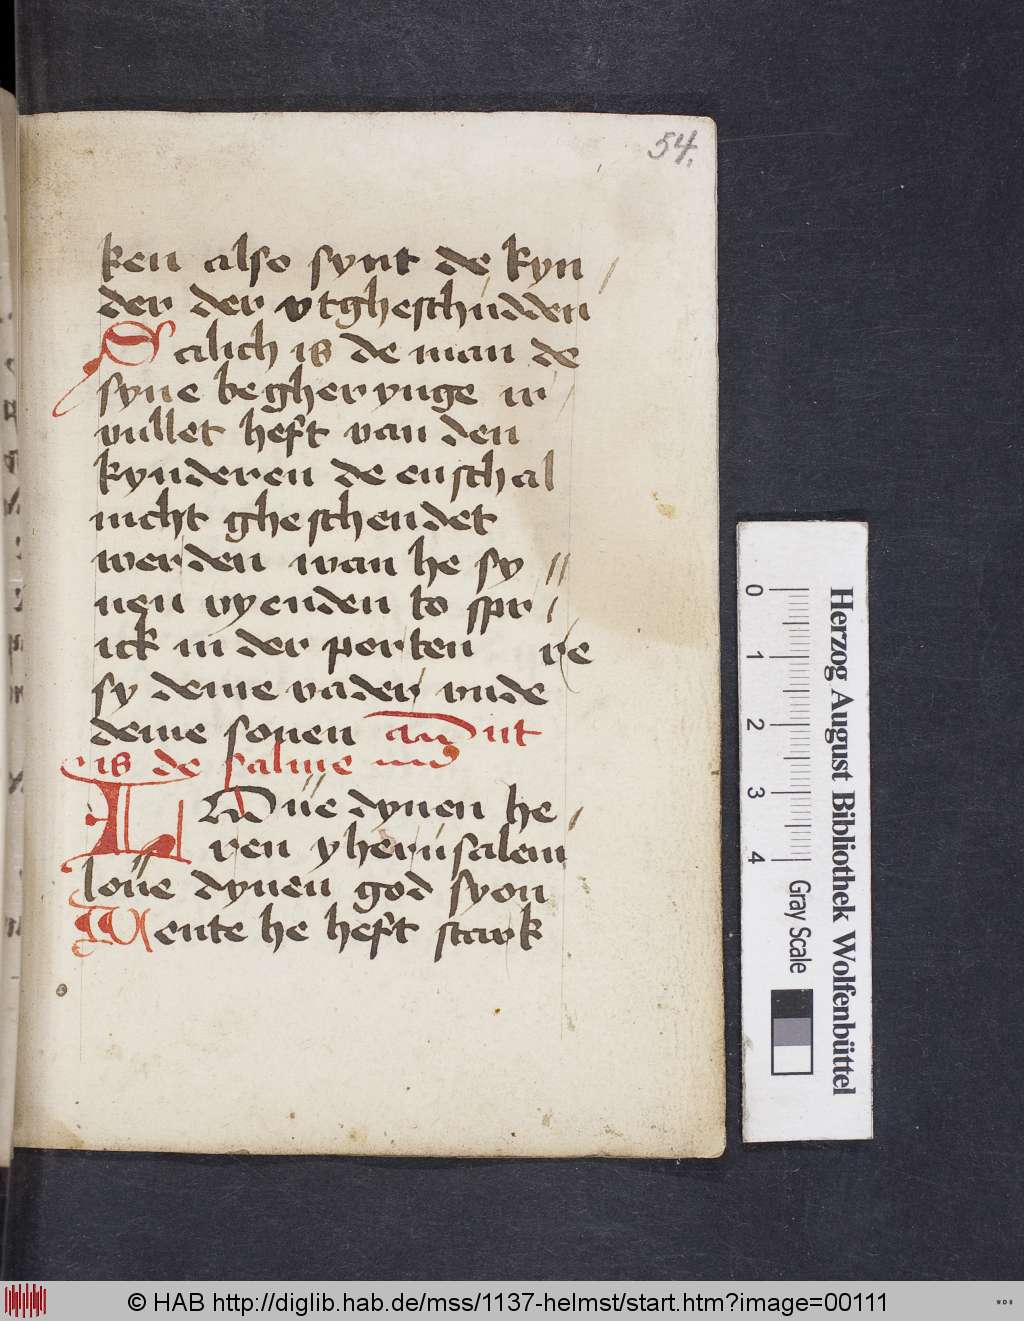 54.
ken also synt de kyn /
der der vtgheschudden
Salich is de man de
syne begherynge ir /
vullet heft van den
kynderen de en schal
nicht gheschendet
werden wan he sy //
nen vyenden to spr /
ick in der porten ere
sy deme vader vnde
deme sonen Dit
is de salme
L Aůe dynen he /
ren yherusalem
loůe dynen god syon
Wente he heft stark
0 1 2 3 4 Gray Scale
Herzog August Bibliothek Wolfenbüttel
© HAB http://diglib.hab.de/mss/1137-helmst/start.htm?image=00111